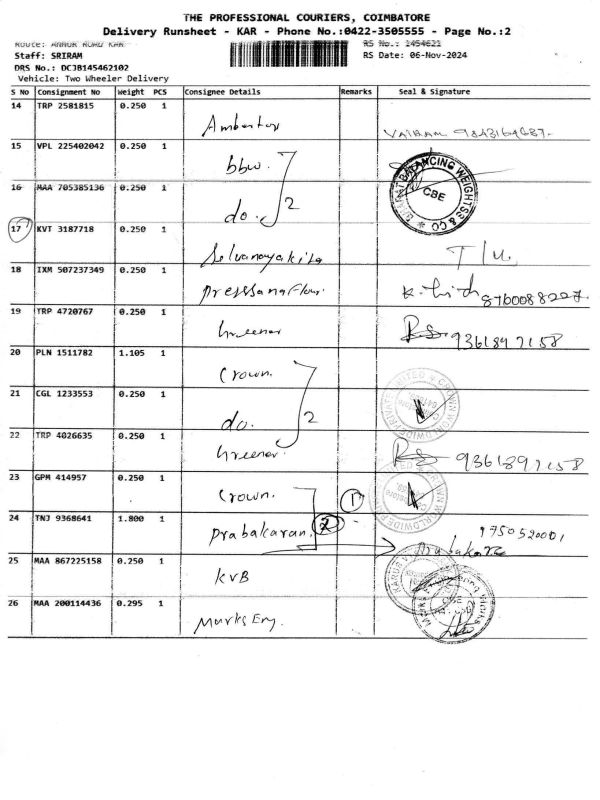 THE PROFESSIONAL COURIERS, COIMBATORE
Delivery Runsheet - KAR - Phone No.:0422-3505555 - Page No.:2
Route: ANNUR ROAD KAR RS No.: 1454621
Staff: SRIRAM RS Date: 06-Nov-2024
DRS No.: DCJB145462102
Vehicle: Two Wheeler Delivery
S No Consignment No Weight PCS Consignee Details Remarks Seal & Signature
14 TRP 2581815 0.250 1
VAIRAM
15 VPL 225402042 0.250 1 bbw.
BHARAT BALANCING WEIGHTSS & CO CBE
16 MAA 705385136 0.250 1 do. 2
17 KVT 3187718 0.250 1 Selvanayaki
18 IXM 507237349 0.250 1 8760088227
19 TRP 4720767 0.250 1 Greener Rs 9361897158
20 PLN 1511782 1.105 1 Crown.
21 CGL 1233553 0.250 1 do. 2
CROWN WORLDWIDE PRIVATE LIMITED
22 TRP 4026635 0.250 1 Greener Rs 9361897158
23 GPM 414957 0.250 1 Crown. 1
24 TNJ 9368641 1.800 1 Prabakaran. 2 9750520001
Prabakaran
25 MAA 867225158 0.250 1 KVB
26 MAA 200114436 0.295 1 Marks Eng.
CBE